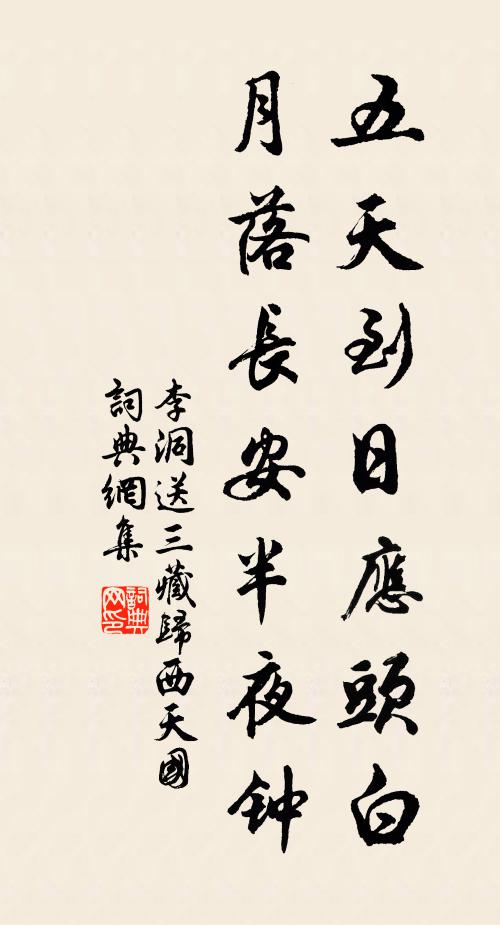 五天到日應頭白
月落長安半夜钟
李洞送三藏歸西天國
詞典網集
詞典网印